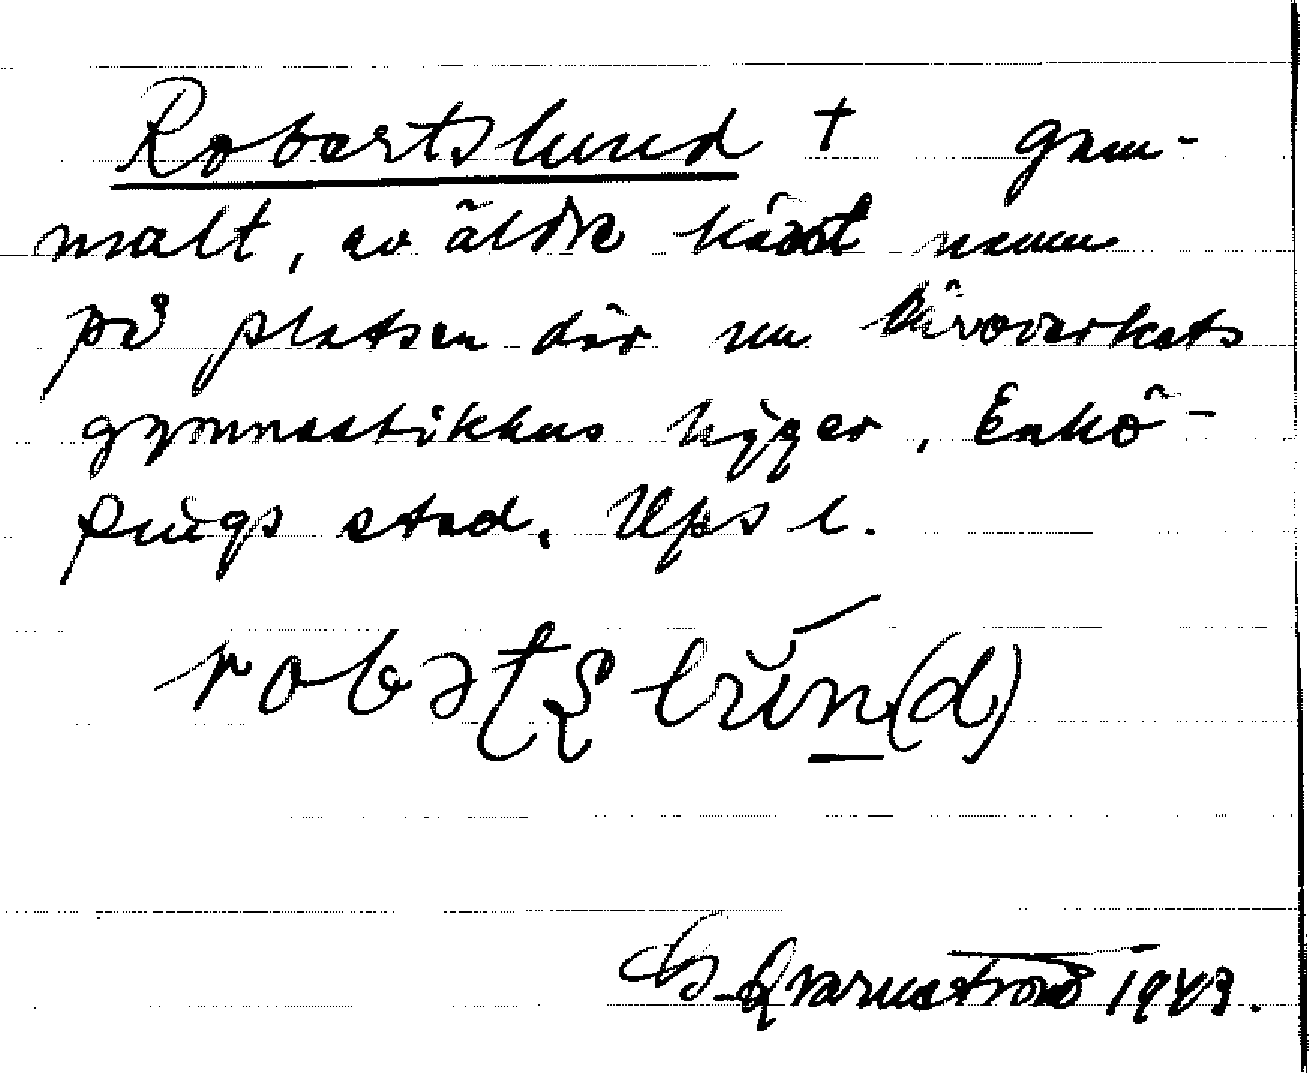 Robertslund † gam-
malt, av äldre känt namn
på platsen där nu läroverkets
gymnastikhus ligger, Enkö-
pings stad. Upsl.
Qvarnström 1943.